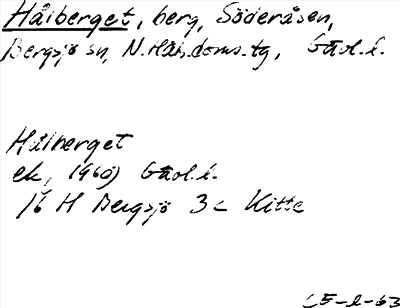 Hålberget, berg, Söderåsen,
Bergsjö sn, N. Häls. doms. tg, Gävl. l.
Hålberget
ek, 1960) Gävl. l.
16 H Bergsjö 3c Kitte